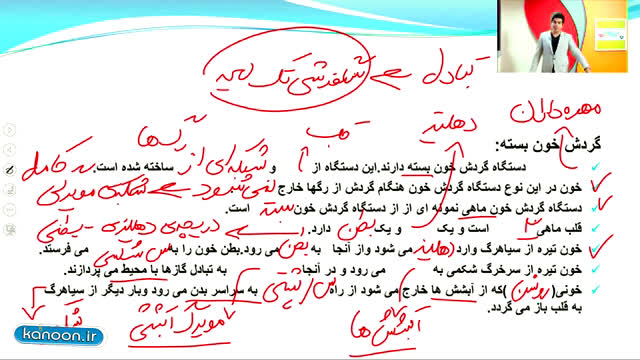 تبادل ← سنگفرشی تک لایه
مهره داران
دهلیز
قلب
رگ ها
گردش خون بسته:
دستگاه گردش خون بسته دارند.این دستگاه از و شبکه ای از ساخته شده است.
خون در این نوع دستگاه گردش خون هنگام گردش از رگها خارج نمی شود ← شبکه مویرگی کامل
دستگاه گردش خون ماهی نمونه ای از از دستگاه گردش خون بسته است.
قلب ماهی ۲ است و یک و یک بطن دارد. دریچه ی دهلیزی - بطنی
خون تیره از سیاهرگ وارد دهلیز می شود واز آنجا به بطن می رود.بطن خون را به س شکمی می فرستد.
خون تیره از سرخرگ شکمی به می رود و در آنجا به تبادل گازها با محیط می پردازند.
خونی( روشن )که از آبشش ها خارج می شود از راه س پشتی به سراسر بدن می رود وبار دیگر از سیاهرگ
به قلب باز می گردد.
آبشش ها
مویرگ آبششی
kanoon.ir